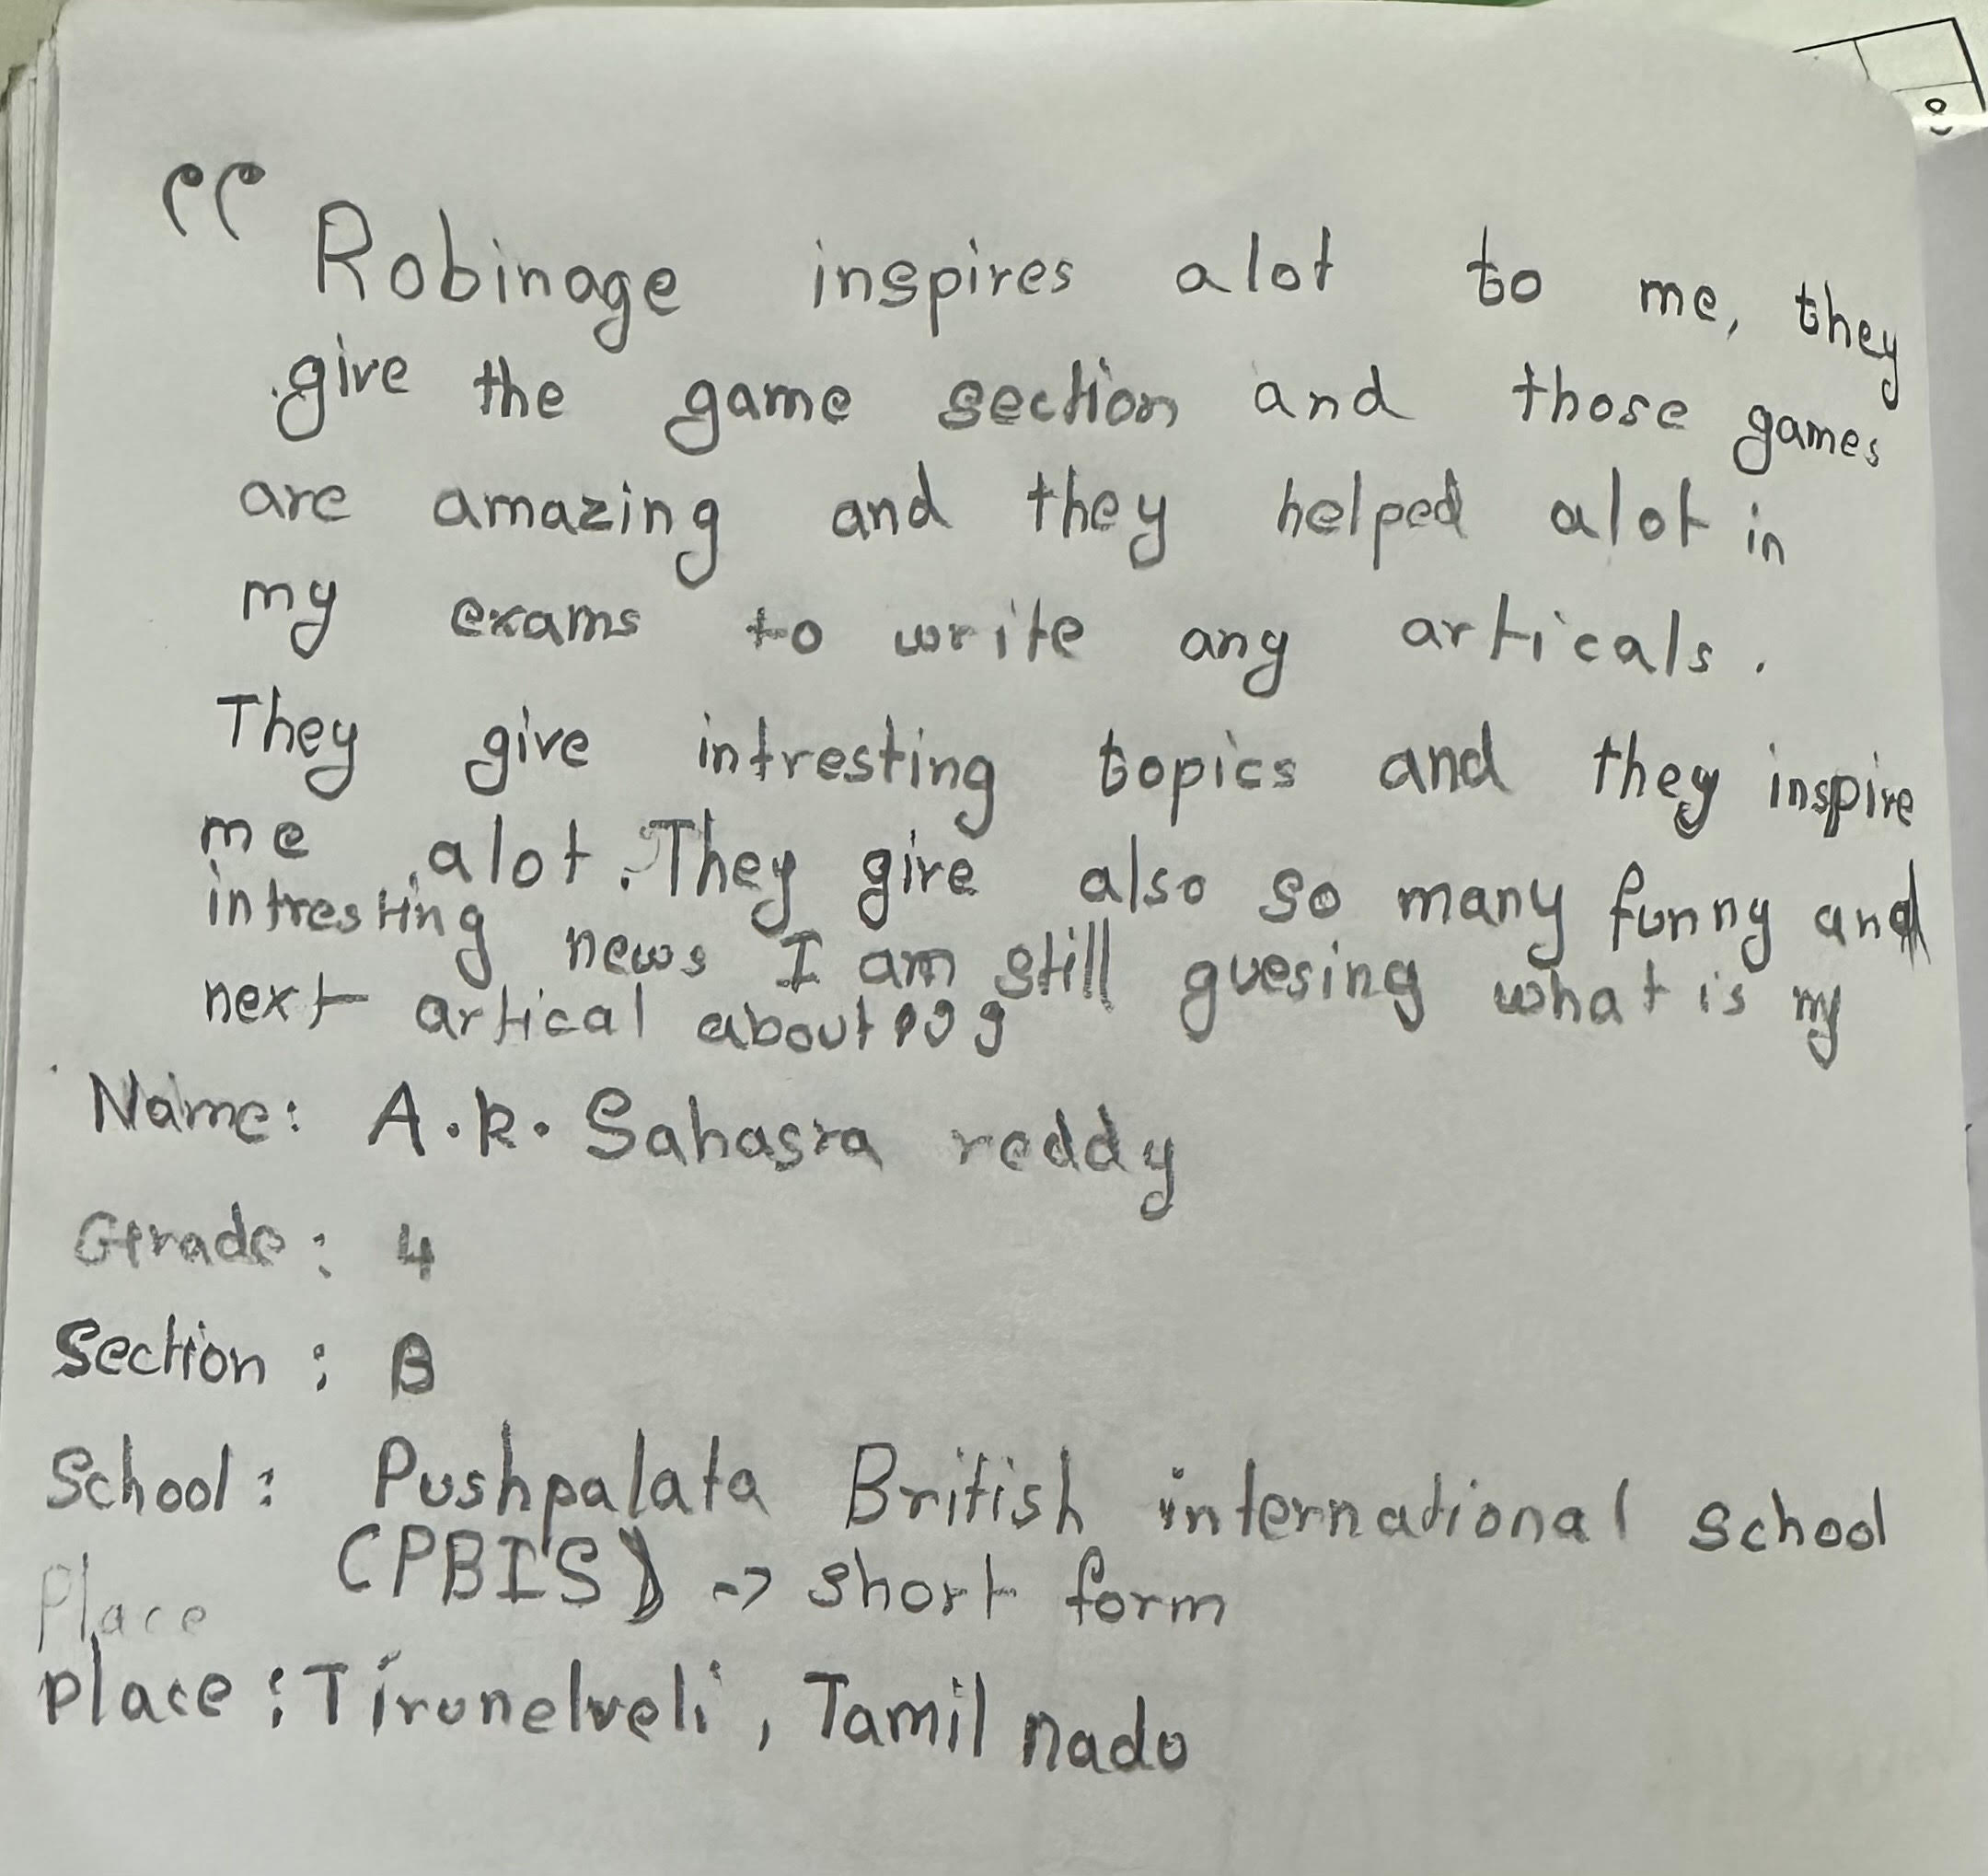 “ Robinage inspires alot to me, they
give the game section and those games
are amazing and they helped alot in
my exams to write any articals.
They give intresting topics and they inspire
me alot. They give also so many funny and
intresting news I am still guesing what is my
next artical about
Name: A.R. Sahasra reddy
Grade: 4
Section: B
School: Pushpalata British international school
(PBIS) -> short form
Place
place: Tirunelveli, Tamil nadu